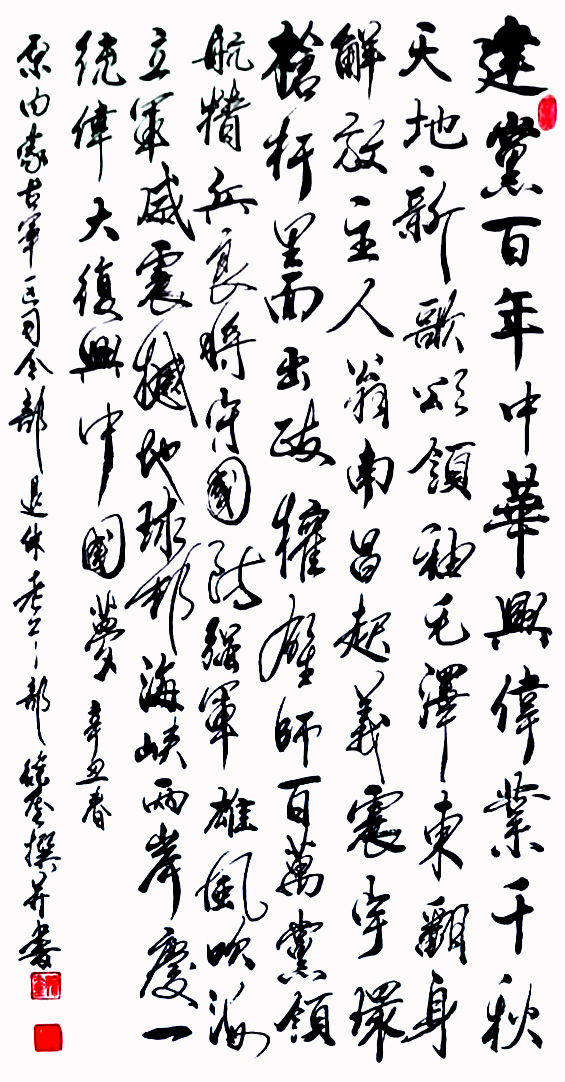 建黨百年中華興偉業千秋
天地新歌頌領袖毛澤東翻身
解放主人翁南昌起義震宇環
槍杆里面出政權雄師百萬黨領
航精兵良將守國防強軍雄風吹海
立軍威震撼地球邨海峽兩岸慶一
統偉大復興中國夢 辛丑春
原内蒙古軍区司令部退休老干部 徐撰并書